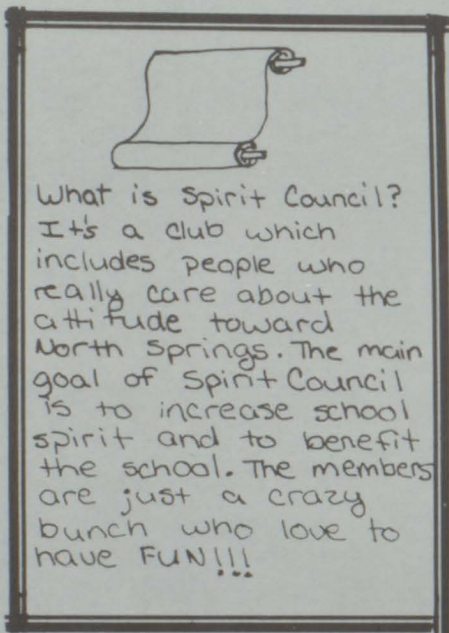 What is Spirit Council?
It's a club which
includes people who
really care about the
attitude toward
North Springs. The main
goal of Spirit Council
is to increase school
spirit and to benefit
the school. The members
are just a crazy
bunch who love to
have FUN!!!